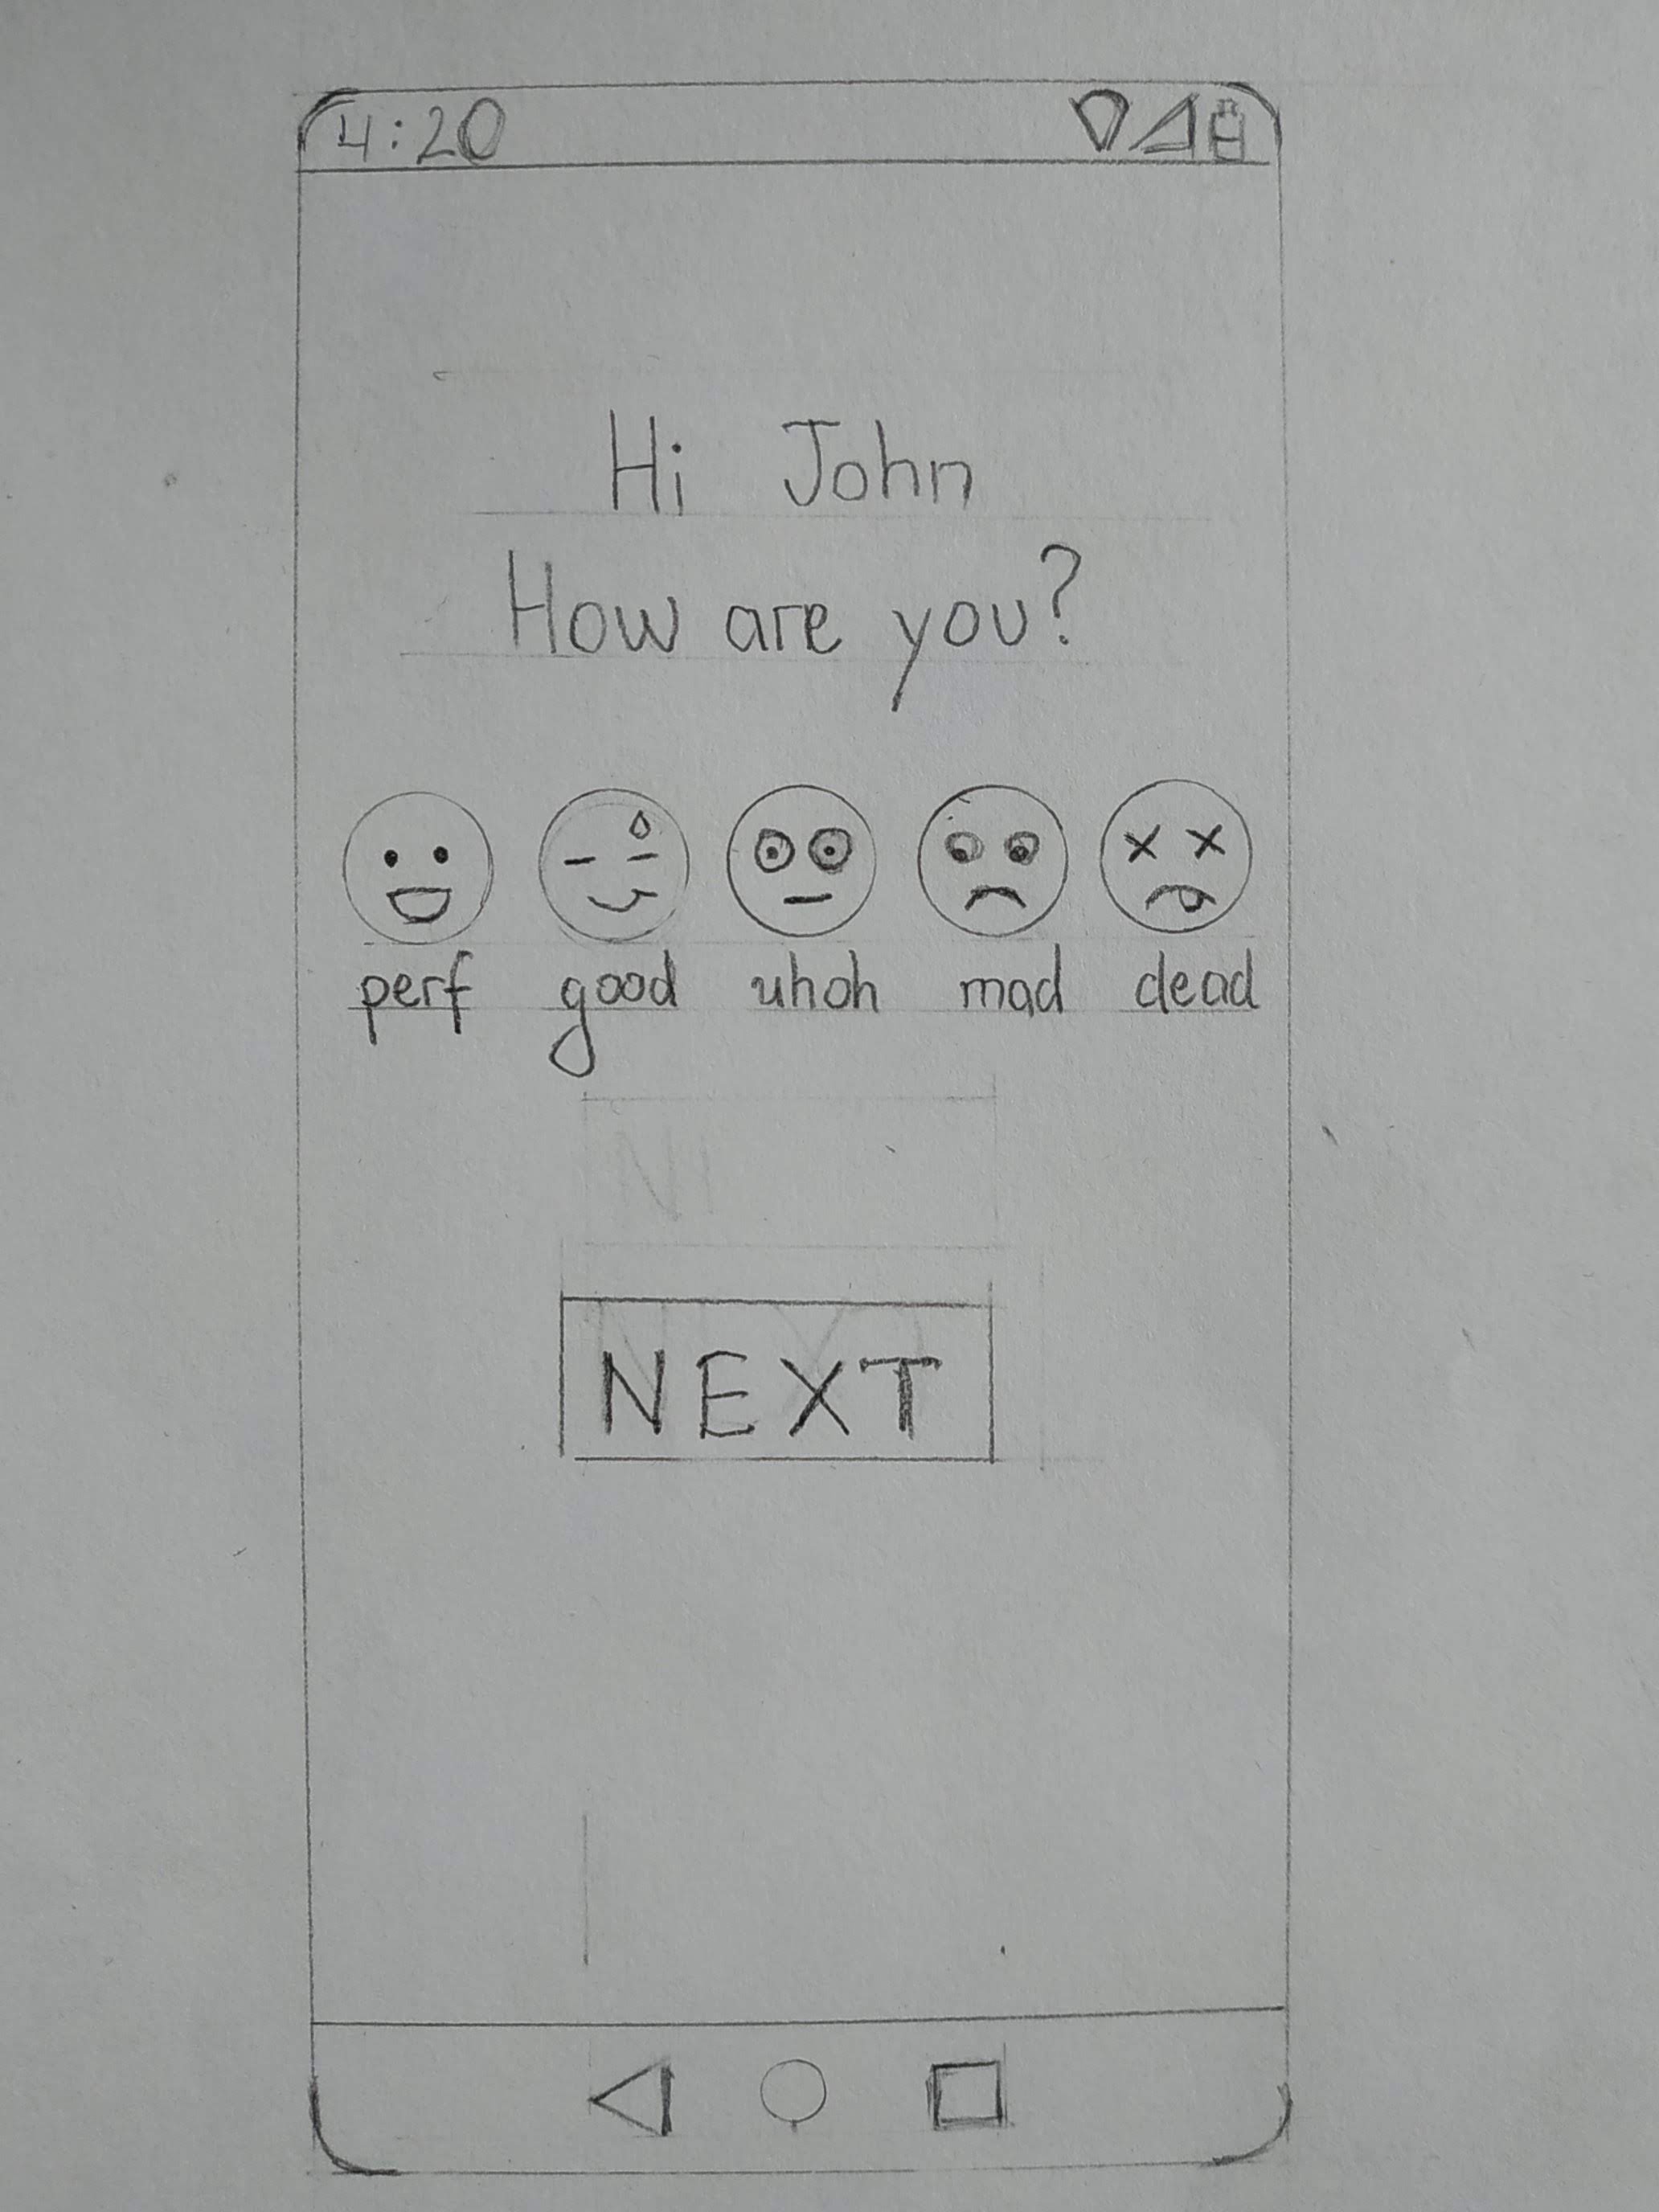 4:20
Hi John
How are you?
perf good uhoh mad dead
NEXT